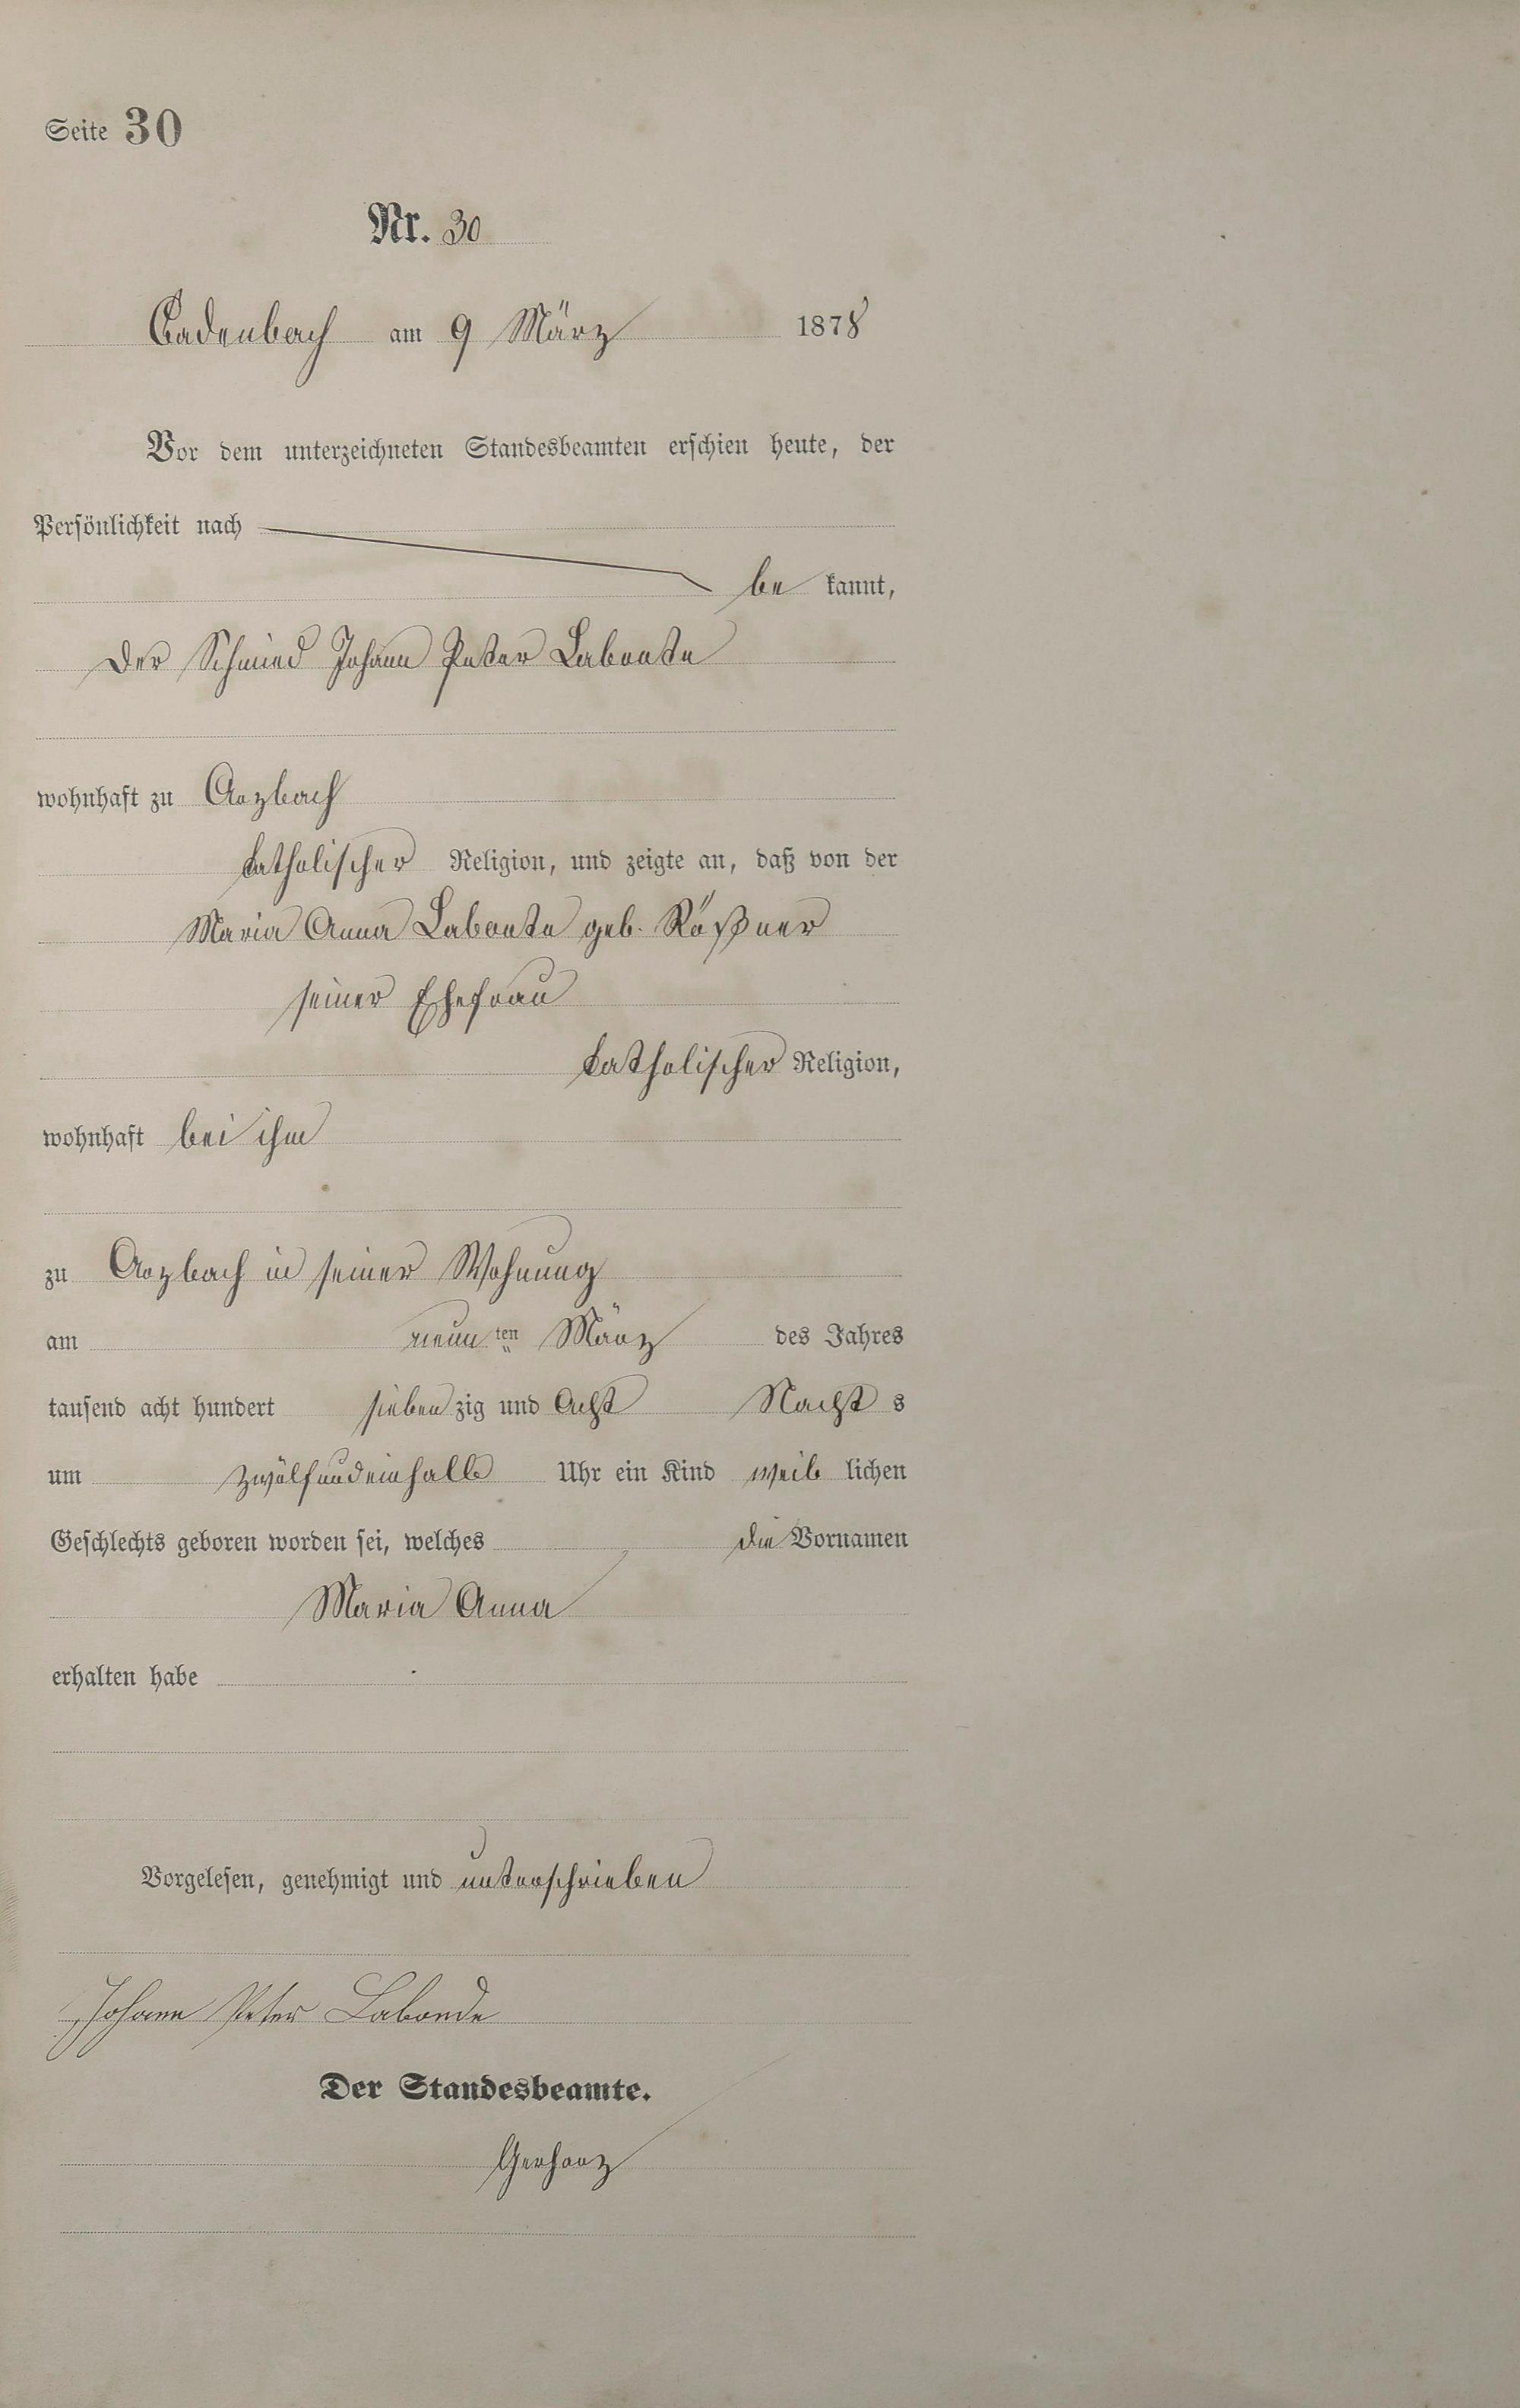 Seite 30
Nr. 30
Cadenbach am 9 März 1878
Vor dem unterzeichneten Standesbeamten erschien heute, der
Persönlichkeit nach
be kannt,
der Schmied Johann Peter Labonte
wohnhaft zu Arzbach
katholischer Religion, und zeigte an, daß von der
Maria Anna Labonte geb. Rößner
seiner Ehefrau
katholischer Religion,
wohnhaft bei ihm
zu Arzbach in seiner Wohnung
am neun ten März des Jahres
tausend acht hundert sieben zig und Acht Nacht s
um zwölfundeinhalb Uhr ein Kind weib lichen
Geschlechts geboren worden sei, welches die Vornamen
Maria Anna
erhalten habe
Vorgelesen, genehmigt und unterschrieben
Johann Peter Labonde
Der Standesbeamte.
Gerharz